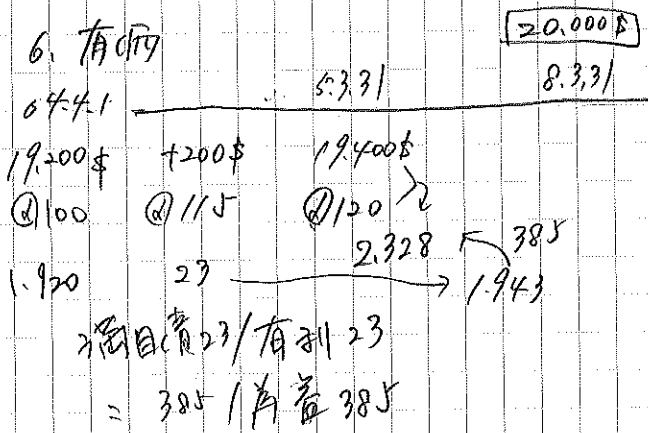 20.000$
6. 有価
04.4.1 5.3.31 8.3.31
19.200$ +200$ 19.400$
@100 @115 @120
2.328 385
1.920 23 1.943
満目債23/有利23
= 385/為差385